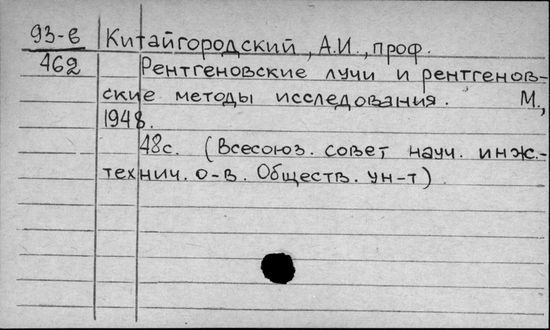 93-в Китайгородский, А.И., проф.
462 Рентгеновские лучи и рентгенов-
ские методы исследования. М.,
1948.
48с. (Всесоюз. совет науч. инж.-
технич. о-в. Обществ. ун-т).